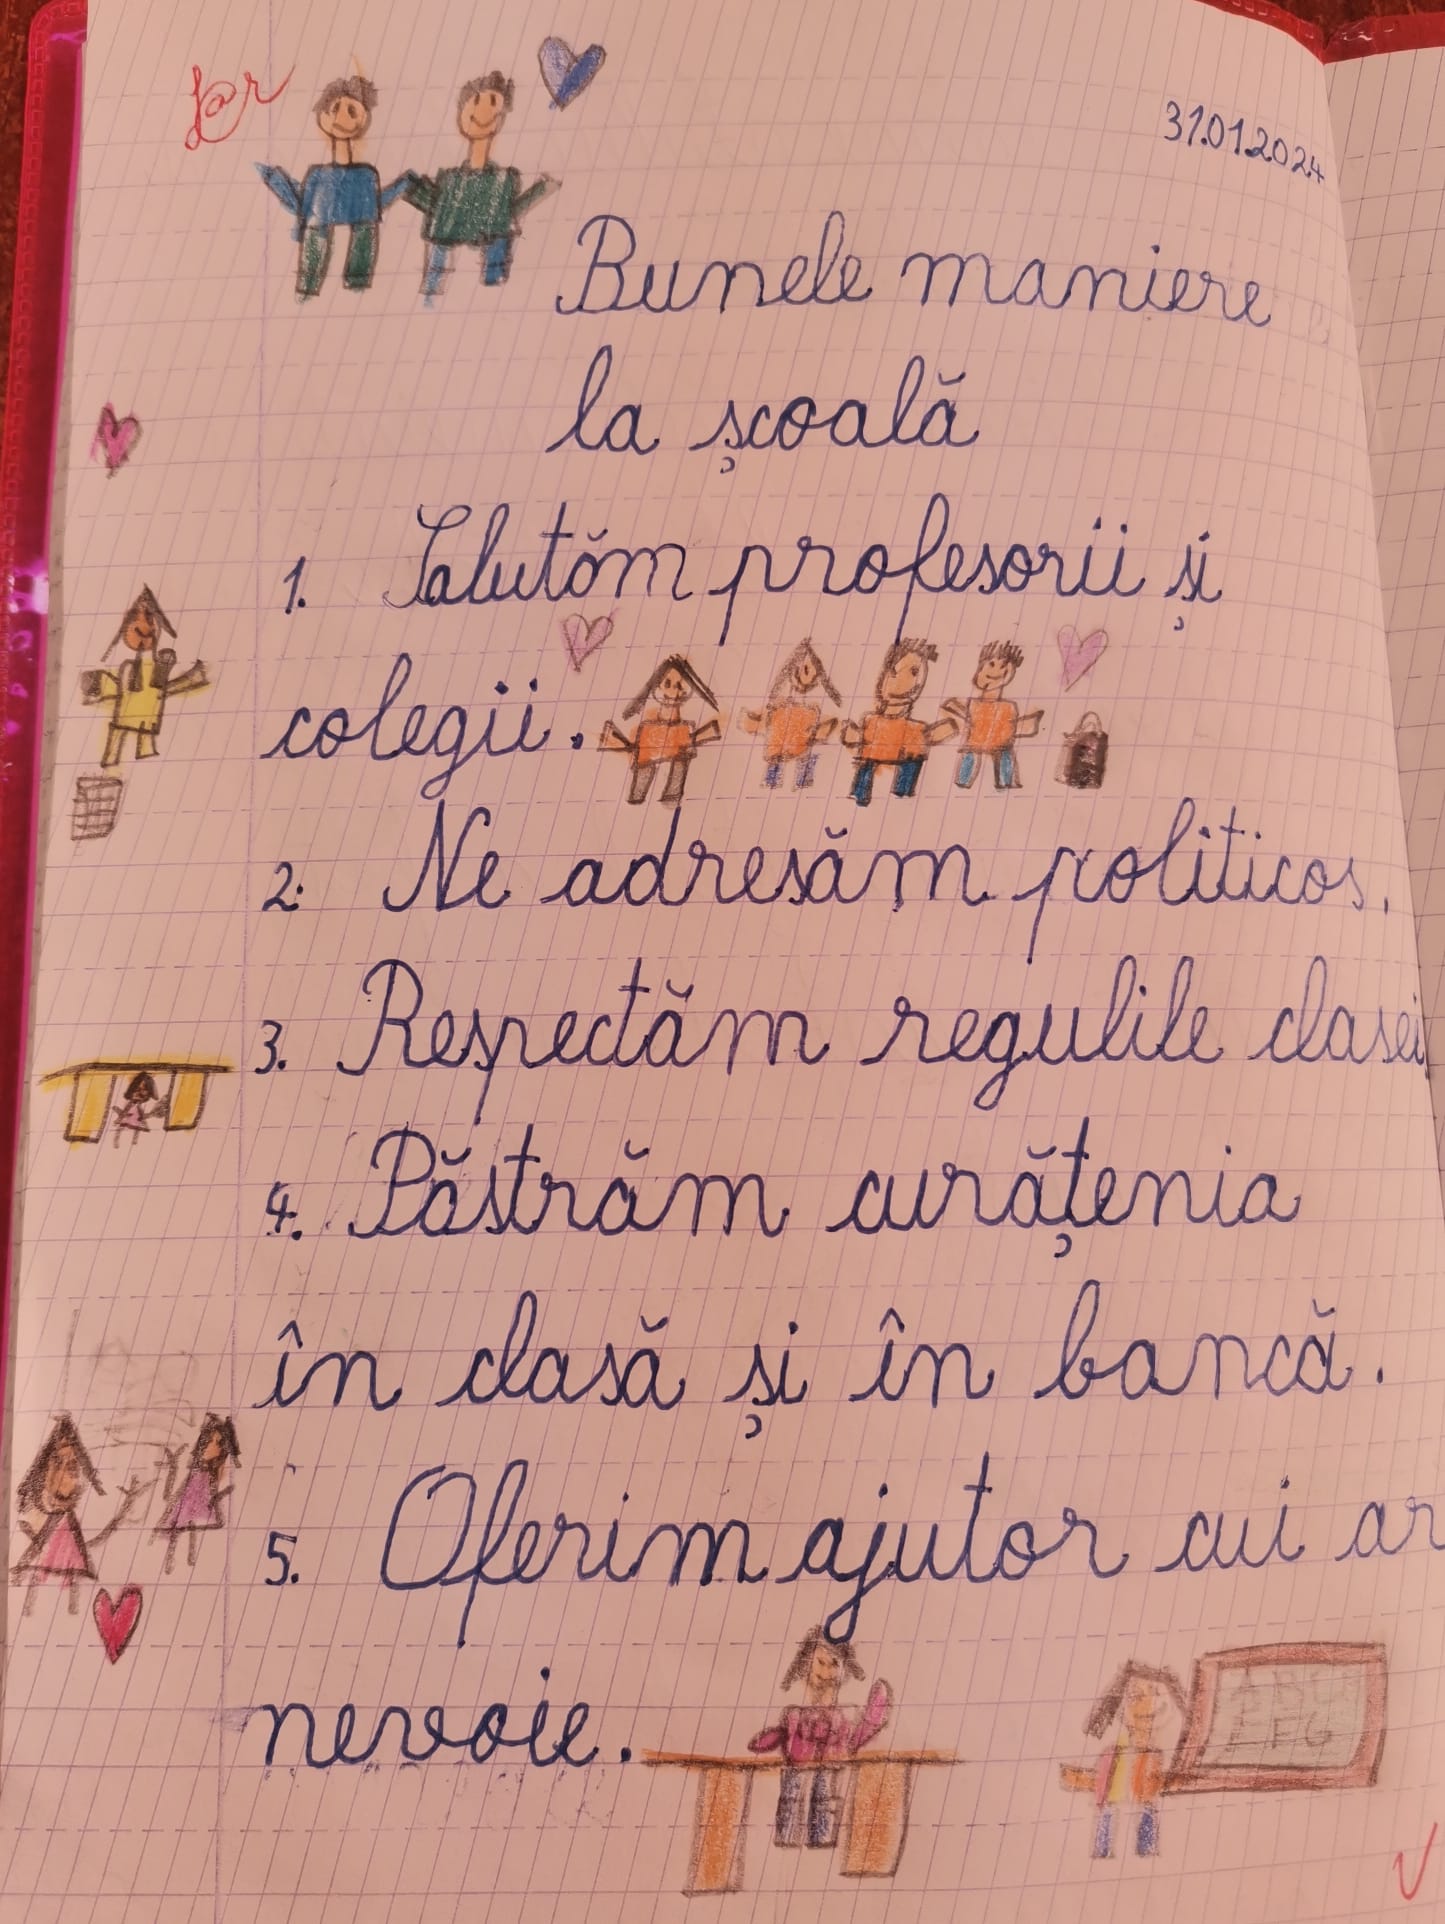 31.01.2024
Bunele maniere
la școală
1. Salutăm profesorii și
colegii.
2. Ne adresăm politicos.
3. Respectăm regulile clasei
4. Păstrăm curățenia
în clasă și în bancă.
5. Oferim ajutor cui ar
nevoie.